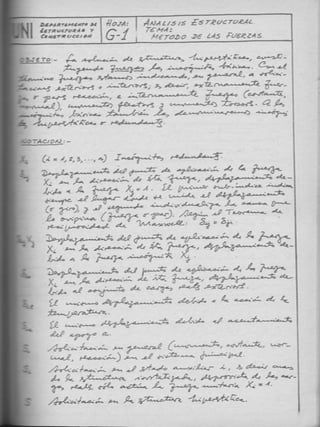 UNI DEPARTAMENTO DE ESTRUCTURAS Y CONSTRUCCION
HOJA: G-1
ANALISIS ESTRUCTURAL
TEMA:
METODO DE LAS FUERZAS.
OBJETO.- La solución de estructuras hiperstáticas, consti-
tuyendo fuerzas las incógnitas básicas. Con el
término fuerzas estamos indicando, en general, a solici-
taciones exteriores o interiores, es decir exteriormente fuer-
za o par reacción, e interiormente a fuerzas (cortante,
normal), momentos flectores y momentos torsores. A las
incógnitas básicas también las denominaremos incógni-
tas hiperstáticas o redundantes.
NOTACION.-
Xi (i = 1, 2, 3, ..., n) Incógnitas redundantes.
Desplazamiento del punto de aplicación de la fuerza
Xi en la dirección de ésta fuerza, desplazamiento de-
bido a la fuerza Xj = 1. El primer sub-índice indica
siempre el lugar donde se mide el desplazamiento
(o giro) y el segundo individualiza la causa que
lo origina (fuerza o par). Según el Teorema de
reciprocidad de Maxwell: δij = δji
δij Xj Desplazamiento del punto de aplicación de la fuerza
Xi en la dirección de ésta fuerza, desplazamiento de-
bido a la fuerza incógnita Xj.
Desplazamiento del punto de aplicación de la fuerza
Xi en la dirección de ésta fuerza, desplazamiento de-
bido al conjunto de cargas reales exteriores.
El mismo desplazamiento debido a la acción de la
temperatura.
El mismo desplazamiento debido al asentamiento
del apoyo a.
Solicitación en general (momento, cortante, nor-
mal, reacción) en el sistema principal.
Solicitación en el estado auxiliar i, es decir cuando
de la estructura isostatizada, desprovista de las car-
gas reales sólo actúa la fuerza unitaria Xi = 1.
S Solicitación en la estructura hiperstática.